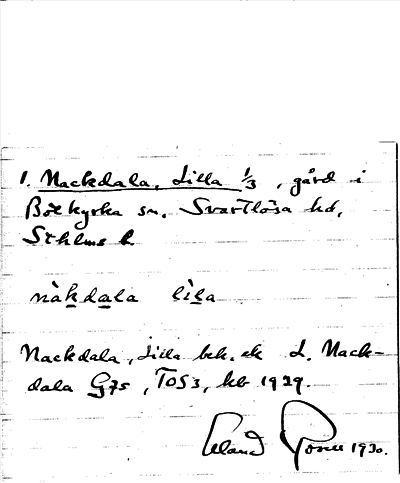 1. Nackdala, Lilla 1/3, gård i
Bötkyrka sn. Svartlösa hd,
Sthlms l.
nàkdala lìla
Nackdala, Lilla bek. ek L. Nack-
dala G75, TOS3, kb 1929.
Erland Rosell 1930.